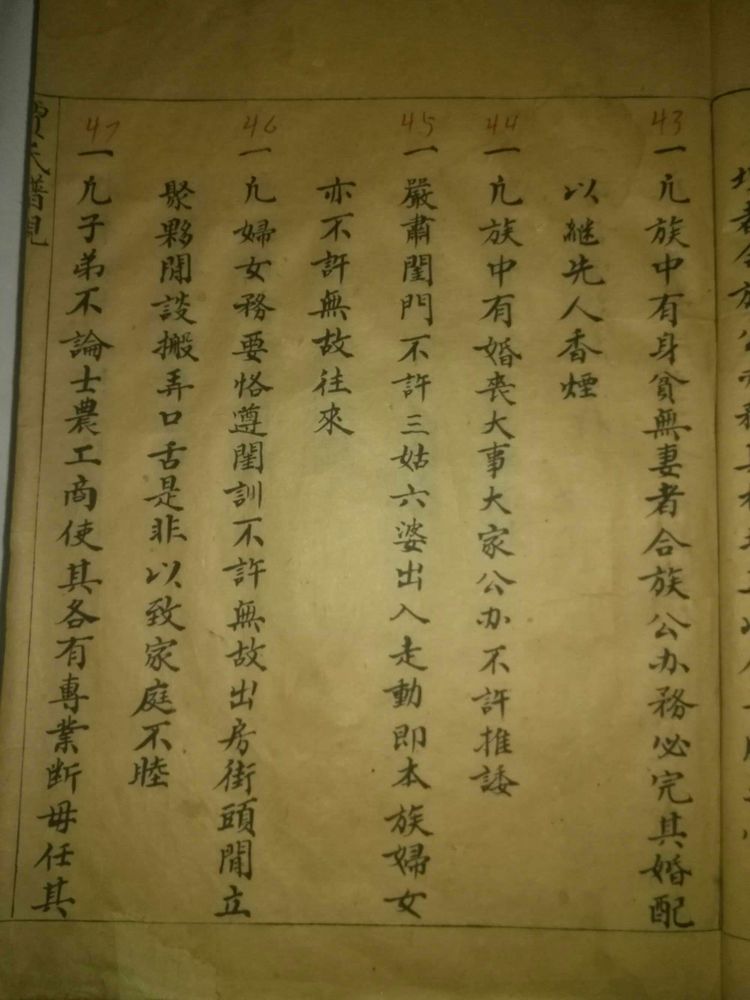 43
一凢族中有身貧無妻者合族公办務必完其婚配
以継先人香煙
44
一凢族中有婚喪大事大家公办不許推諉
45
一嚴肅閨門不許三姑六婆出入走動即本族婦女
亦不許無故往來
46
一凢婦女務要恪遵閨訓不許無故出房街頭閒立
聚夥閒談搬弄口舌是非以致家庭不睦
47
一凢子弟不論士農工商使其各有專業断毋任其